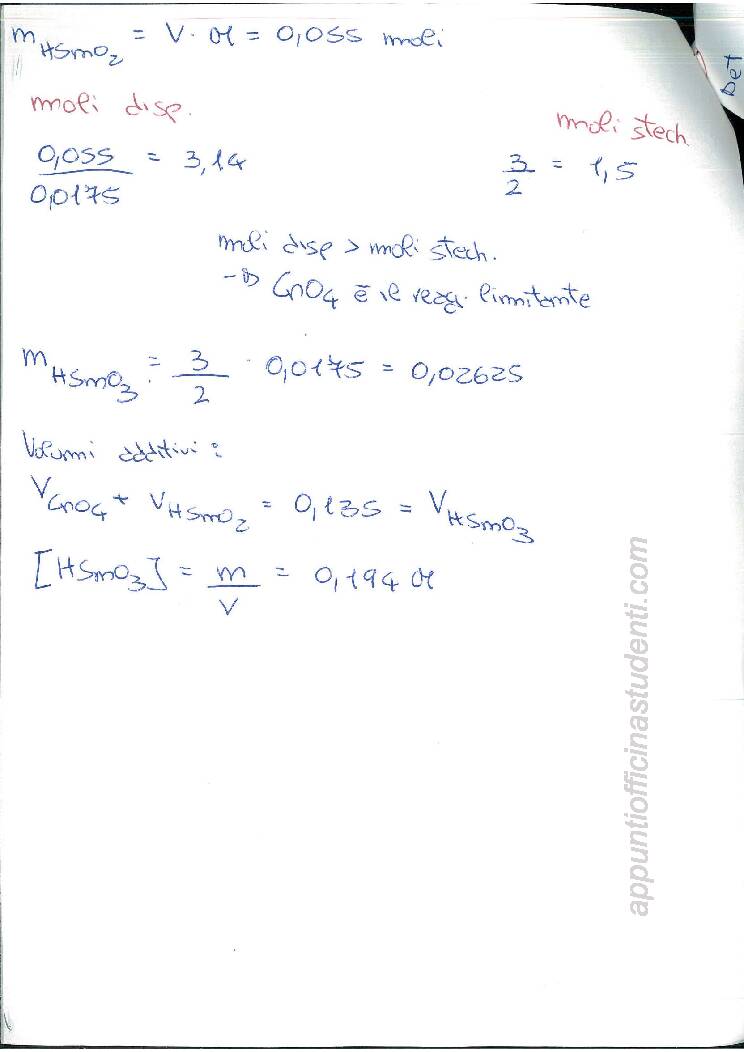 m HSmO2 = V · M = 0,055 moli
Det
moli disp.
moli stech.
0,055 / 0,0175 = 3,14
3/2 = 1,5
moli disp > moli stech.
→ CrO4 è il reag. limitante
m HSmO3 = 3/2 · 0,0175 = 0,02625
Volumi additivi:
V CrO4 + V HSmO2 = 0,135 = V HSmO3
[HSmO3] = m/V = 0,194 M
appuntiofficinastudenti.com